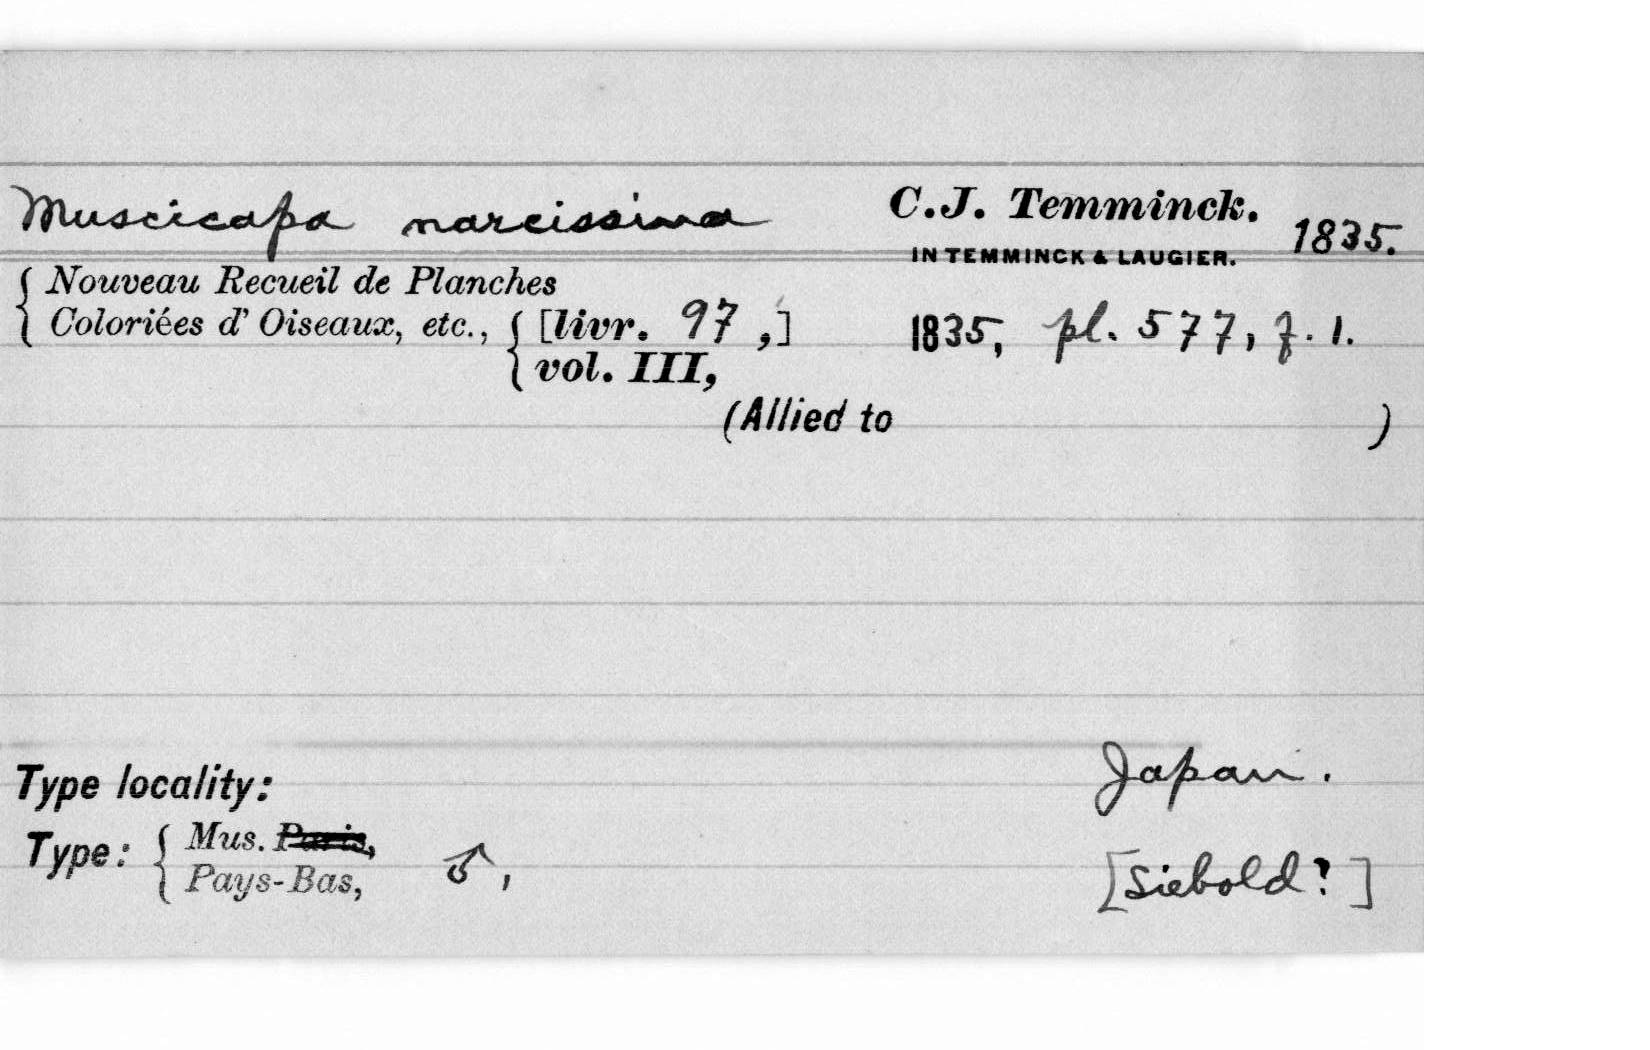 Muscicapa narcissina C.J. Temminck. 1835.
IN TEMMINCK & LAUGIER.
{ Nouveau Recueil de Planches
Coloriées d' Oiseaux, etc., { [livr. 97,] 1835, pl. 577, f. 1.
vol. III,
(Allied to )
Type locality: Japan.
Type: { Mus. Paris,
Pays-Bas, ♂, [Siebold?]